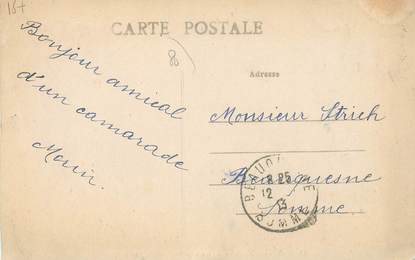 18+
CARTE POSTALE
80
Bonjour amical
d'un camarade
Morin.
Adresse
Monsieur Strich
Beauquesne
Somme
8 25
12
13
SOMME